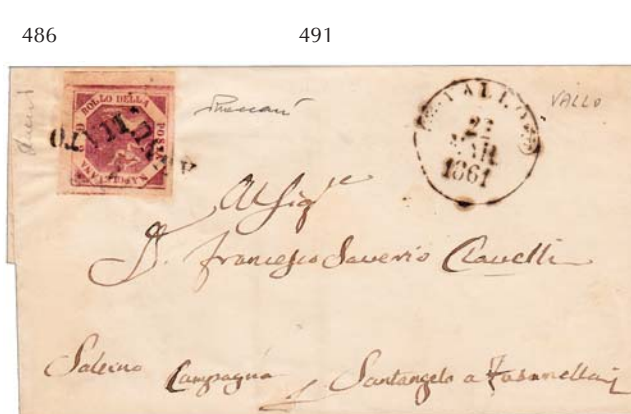 486 491
BOLLO DELLA POSTA NAPOLETANA
ANNULLATO
VALLO
22
MAR.
1861
VALLO
Al Sig.re
D. Francesco Saverio Clavelli
Salerno Campagna Santangelo a Fasanella